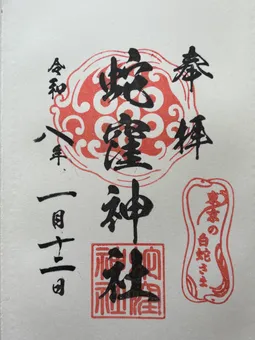 奉拝
蛇窪神社
令和八年
一月十二日
東京の
白蛇さま
蛇窪
神社